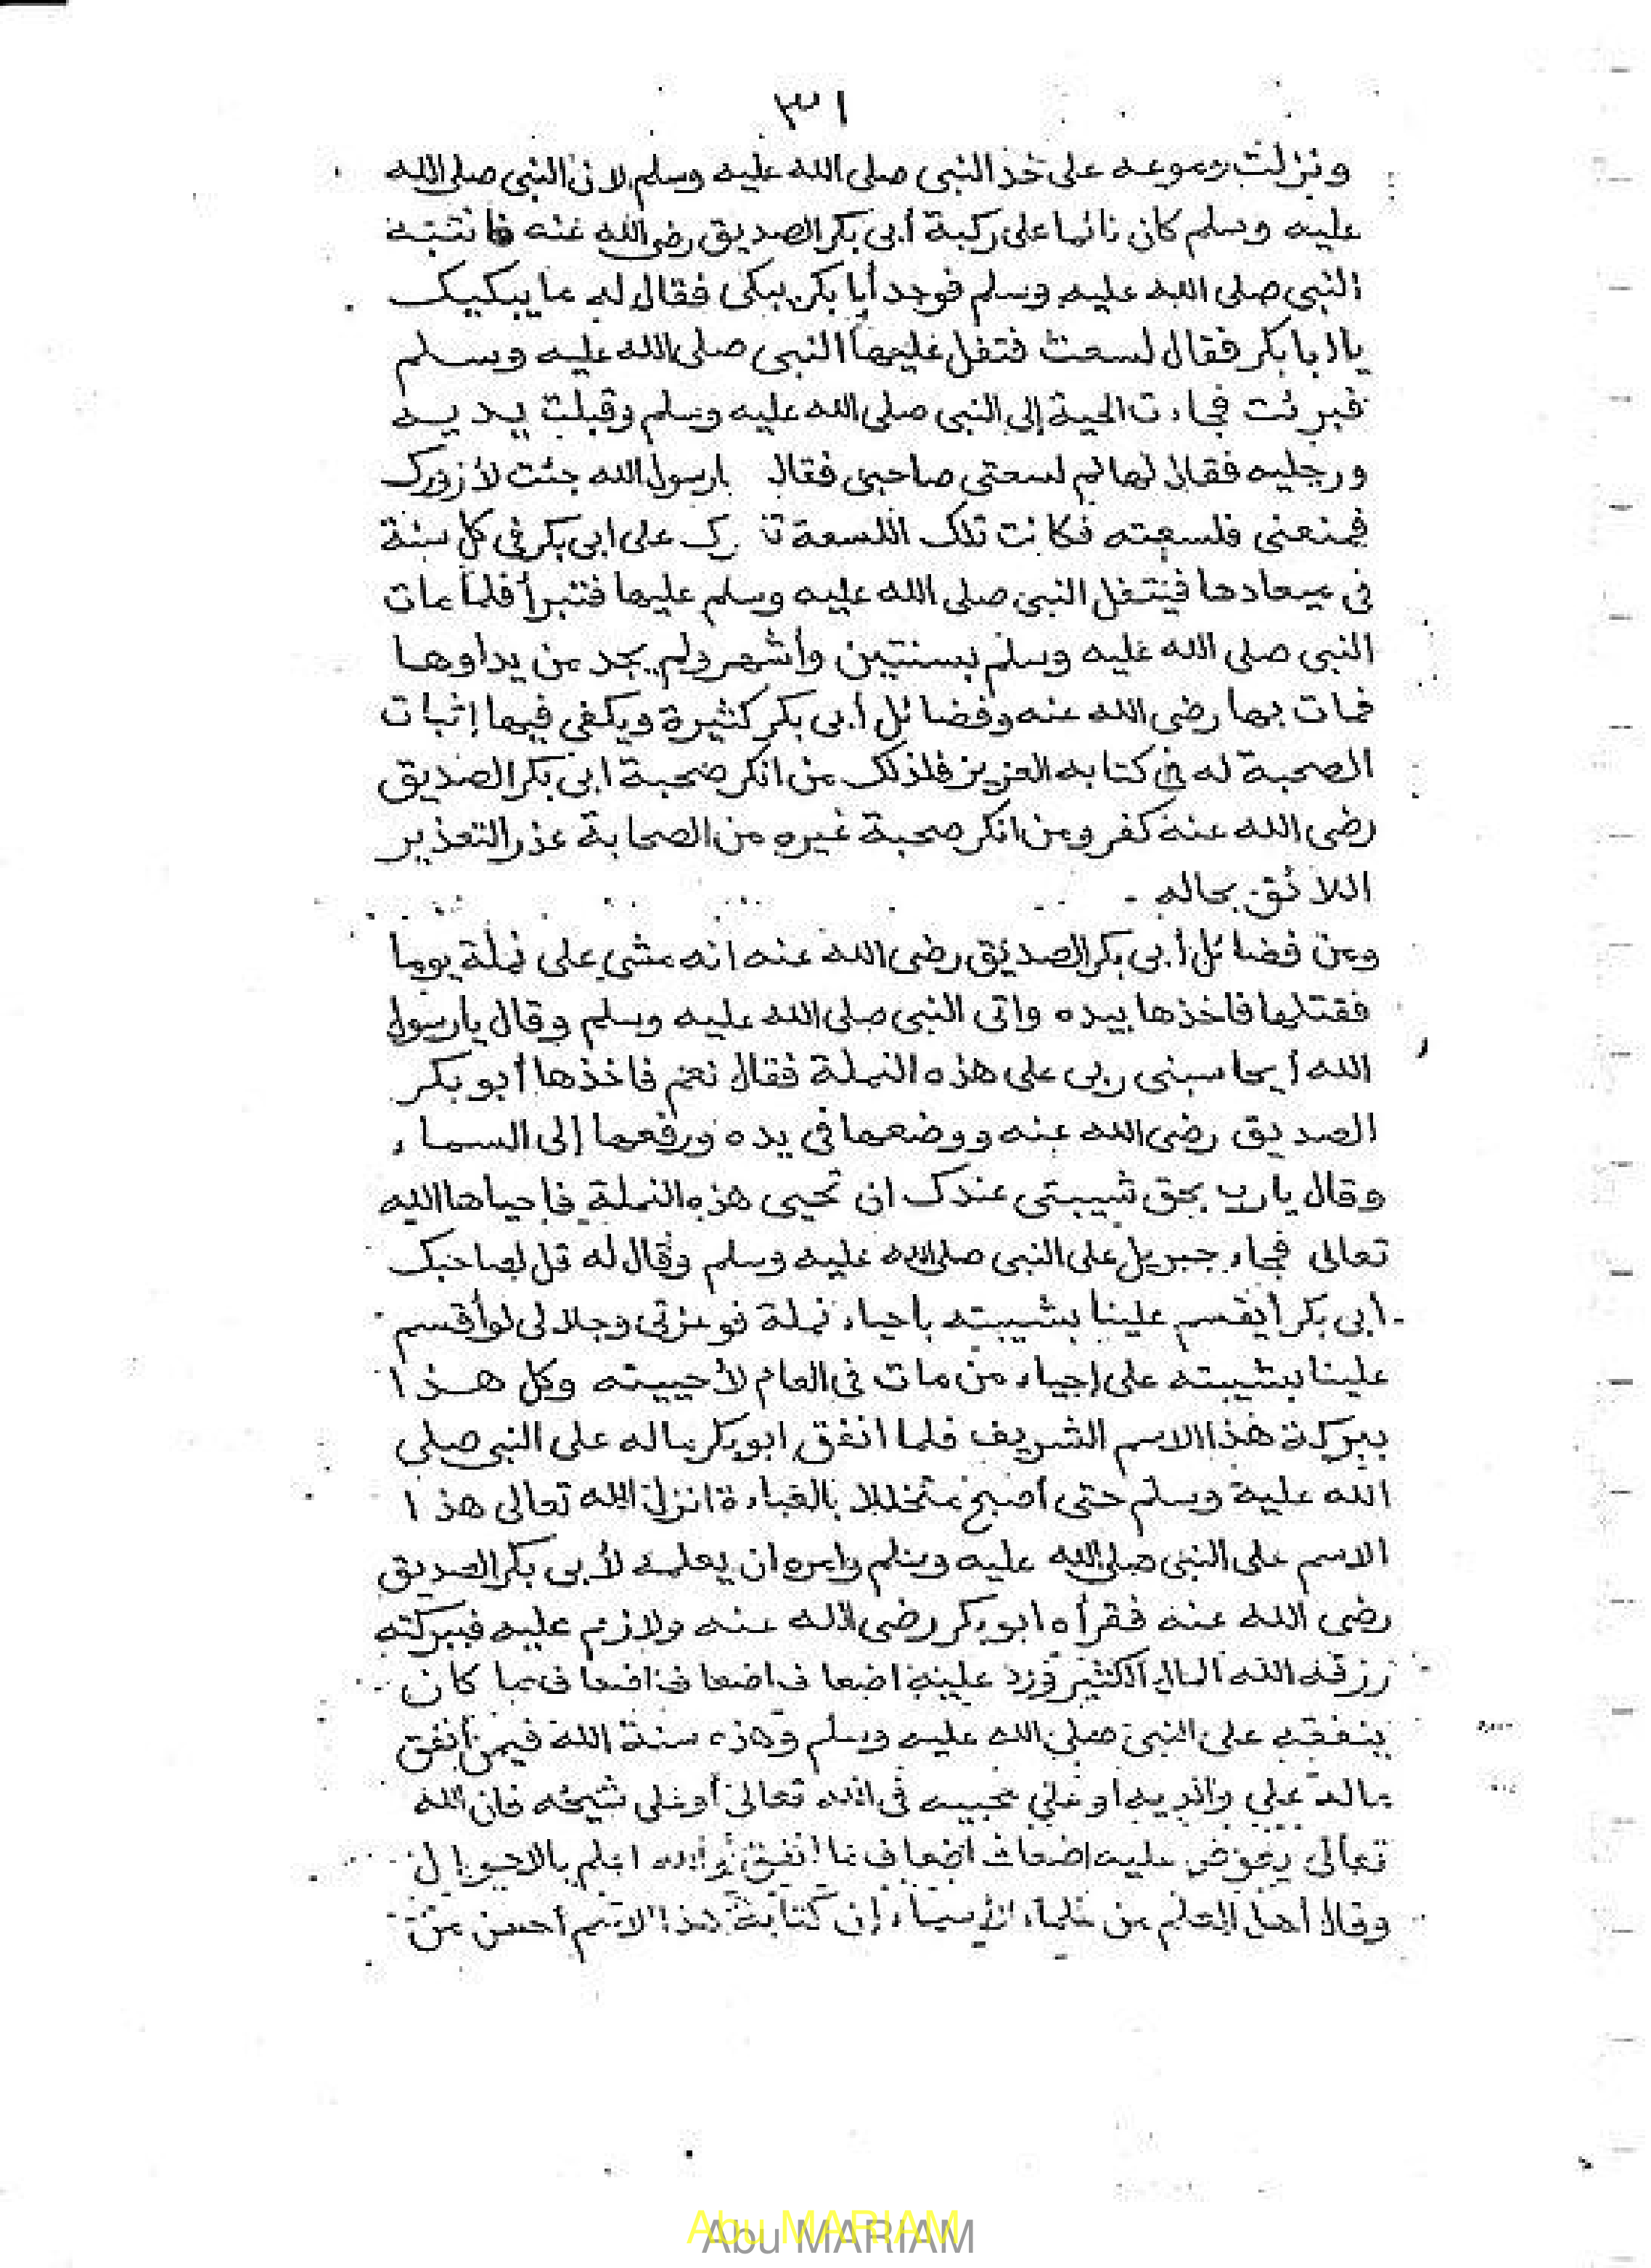 ٣١
ونزلت دموعه على خد النبى صلى الله عليه وسلم لان النبى صلى الله
عليه وسلم كان نائما على ركبة أبى بكر الصديق رضى الله عنه فانتبه
النبى صلى الله عليه وسلم فوجد أبا بكر يبكى فقال له ما يبكيك
يا ابا بكر فقال لسعت فتفل عليها النبى صلى الله عليه وسلم
فبرئت فجاءت الحية إلى النبى صلى الله عليه وسلم وقبلت يديه
ورجليه فقال لها لم لسعتى صاحبى فقال يارسول الله جئت لأزورك
فمنعنى فلسعته فكانت تلك اللسعة على ابى بكر فى كل سنة
فى ميعادها فيتفل النبى صلى الله عليه وسلم عليها فتبرأ فلما مات
النبى صلى الله عليه وسلم بسنتين وأشهر ولم يجد من يداوها
فمات بها رضى الله عنه وفضائل أبى بكر كثيرة ويكفى فيها إثبات
الصحبة له فى كتابه العزيز فلذلك من انكر صحبة ابى بكر الصديق
رضى الله عنه كفر ومن انكر صحبة غيره من الصحابة عذر التعذير
اللائق بحاله .
ومن فضائل أبى بكر الصديق رضى الله عنه انه مشى على نملة يوما
فقتلها فاخذها بيده واتى النبى صلى الله عليه وسلم وقال يارسول
الله أيحاسبنى ربى على هذه النملة فقال نعم فاخذها أبو بكر
الصديق رضى الله عنه ووضعها فى يده ورفعها إلى السماء
وقال يارب بحق شيبتى عندك ان تحيى هذه النملة فاحياها الله
تعالى فجاء جبريل على النبى صلى الله عليه وسلم وقال له قل لصاحبك
ابى بكر أيقسم علينا بشيبته باحياء نملة فوعزتى وجلالى لو أقسم
علينا بشيبته على إحياء من مات فى العام لأحييته وكل هذا
ببركة هذا الاسم الشريف فلما انفق ابو بكر ماله على النبى صلى
الله عليه وسلم حتى أصبح متخللا بالعباءة انزل الله تعالى هذا
الاسم على النبى صلى الله عليه وسلم وامره ان يعلمه لأبى بكر الصديق
رضى الله عنه فقرأه ابو بكر رضى الله عنه ولازم عليه فببركته
رزقه الله المال الكثير ورد عليه اضعاف اضعاف اضعاف ما كان
ينفقه على النبى صلى الله عليه وسلم وهذه سنة الله فيمن أنفق
ماله على والديه أو على محبيه فى الله تعالى أو على شيخه فان الله
تعالى يعوض عليه اضعاف اضعاف ما انفق والله اعلم بالاحوال
وقال أهل العلم من علماء الأسماء إن كتابة هذا الاسم أحسن من
Abu MARIAM